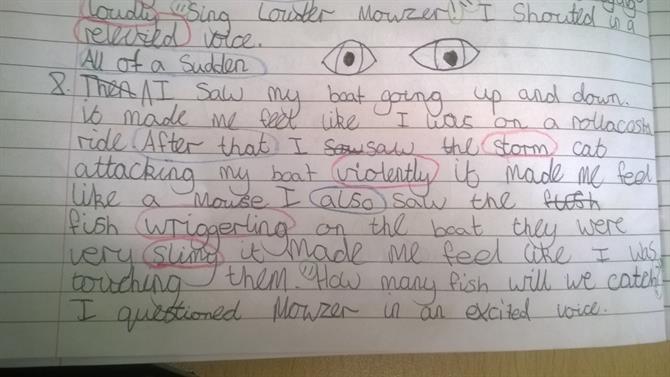 Loudly "Sing Louder Mowzer!" I Shouted in a
releived voice.
All of a Sudden
8. Then ΛI saw my boat going up and down.
it made me feel like I was on a rollacosta
ride. After that I saw saw the storm cat
attacking my boat violently it made me feel
like a mouse I also saw the fish
fish wriggerling on the boat they were
very slimy it made me feel like I was
touching them. "How many fish will we catch"
I questioned Mowzer in an excited voice.